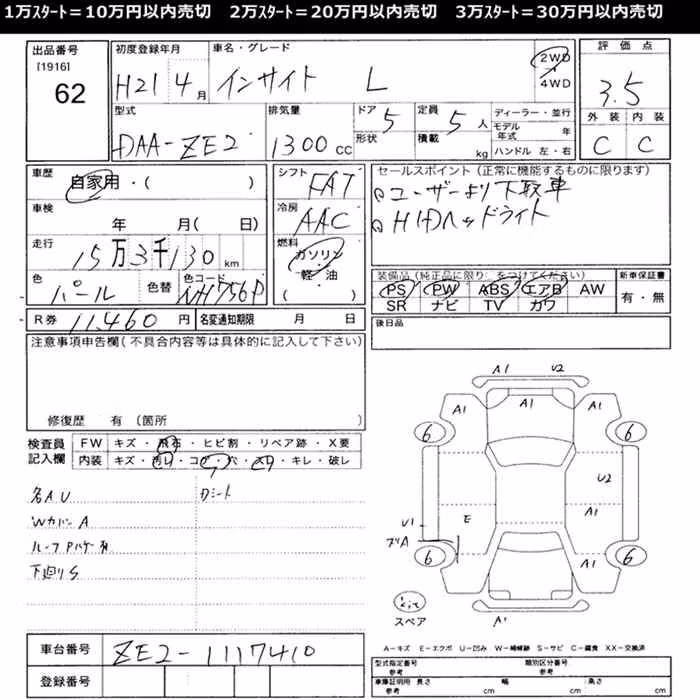 1万ｽﾀｰﾄ＝10万円以内売切　2万ｽﾀｰﾄ＝20万円以内売切　3万ｽﾀｰﾄ＝30万円以内売切
出品番号 [1916] 62
初度登録年月 H21 4月
車名・グレード インサイト L
2WD・4WD
評価点 3.5
外装 内装
C C
型式 DAA-ZE2
排気量 1300cc
ドア 5
形状
定員 5人
積載 kg
ディーラー・並行
モデル年式 年
ハンドル 左・右
車歴 自家用・( )
車検 年 月( 日)
走行 15万3千130km
色 パール
色替
色コード NH756P
シフト FAT
冷房 AAC
燃料 ガソリン・軽・油 ( )
セールスポイント(正常に機能するものに限ります)
ユーザーより下取車
HIDヘッドライト
PS PW ABS エアB AW
SR ナビ TV カワ
新車保証書 有・無
後日品
R券 11,460円
名変通知期限 月 日
注意事項申告欄(不具合内容等は具体的に記入して下さい)
修復歴 有(箇所 )
検査員記入欄
FW キズ・飛石・ヒビ割・リペア跡・X要
内装 キズ・汚れ・コゲ・穴・スレ・キレ・破レ
各AU
Wカバー A
下廻りS
A1 U2
A1 A1 A1
6 6
U2
A1
E
U1
6 6
A1
スペア
A1
A－キズ E－エクボ U－凹み W－補修跡 S－サビ C－腐食 XX－交換済
車台番号 ZE2-1117410
登録番号
型式指定番号 参考
類別区分番号 参考
車庫証明用 参考 長さ cm 幅 cm 高さ cm